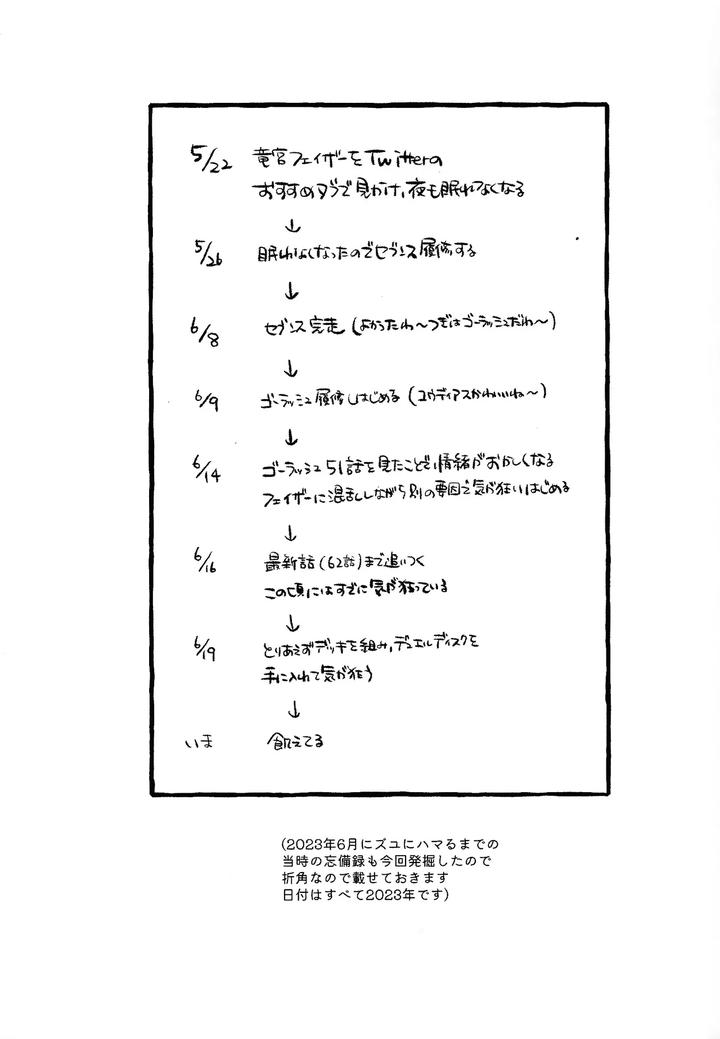 5/22 竜宮フェイザーをTwitterの
おすすめタブで見かけ,夜も眠れなくなる
↓
5/26 眠れなくなったのでセブンス履修する
↓
6/8 セブンス完走(よかったわ〜つぎはゴーラッシュだわ〜)
↓
6/9 ゴーラッシュ履修しはじめる(ユウディアスかわいいね〜)
↓
6/14 ゴーラッシュ51話を見たことで情緒がおかしくなる
フェイザーに混乱しながら別の要因で気が狂いはじめる
↓
6/16 最新話(62話)まで追いつく
この頃にはすでに気が狂っている
↓
6/19 とりあえずデッキを組み,デュエルディスクを
手に入れて気が狂う
↓
いま 飢えてる
(2023年6月にズユにハマるまでの
当時の忘備録も今回発掘したので
折角なので載せておきます
日付はすべて2023年です)